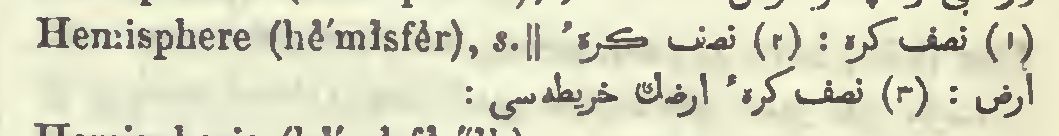 Hemisphere (hĕ′mĭsfĕr), s. || (١) نصف كره : (٢) نصف كرهٔ
أرض : (٣) نصف كرهٔ ارضك خريطه‌سى :